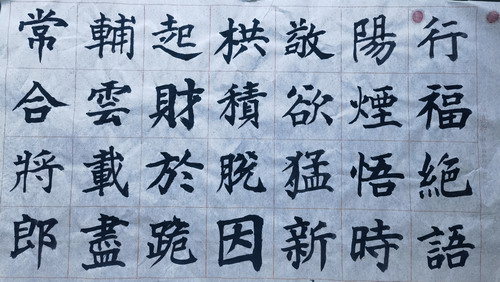 行福絕語
陽煙悟時
敬欲猛新
栱積脫因
起財於跪
輔雲載盡
常合將郎